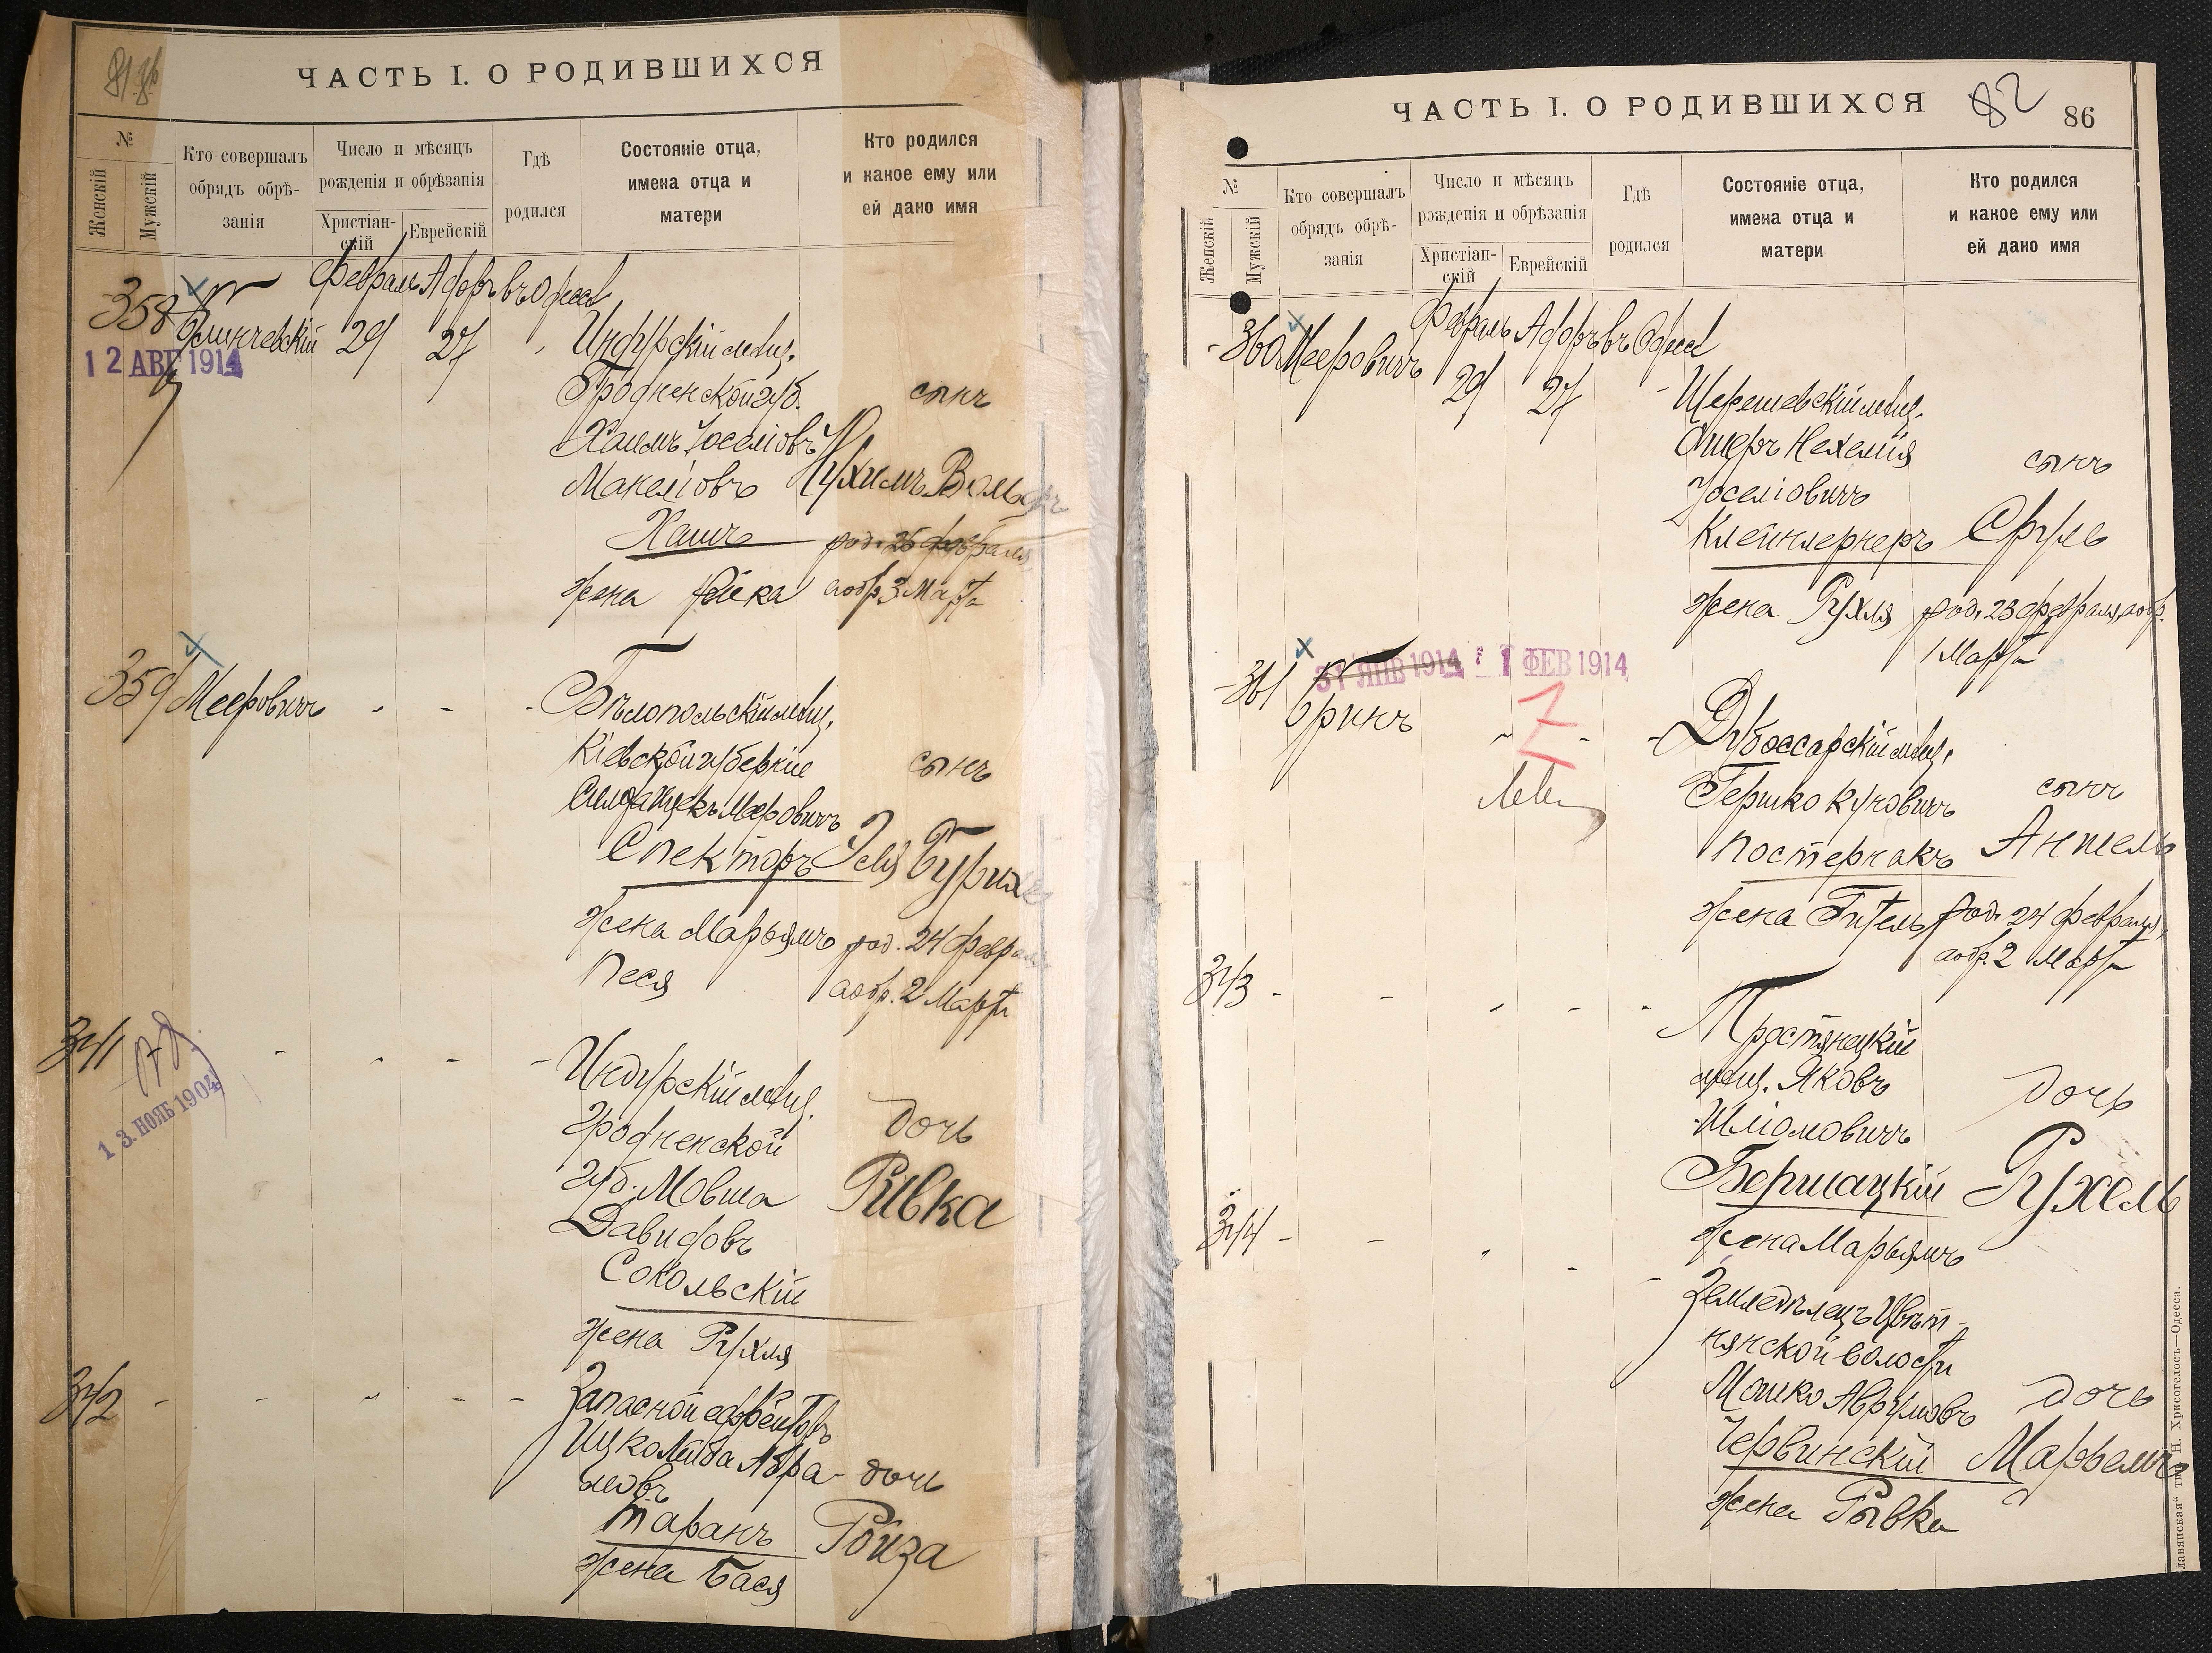 81
ЧАСТЬ I. О РОДИВШИХСЯ
№
Женскій
Мужскій
Кто совершалъ
обрядъ обрѣ-
занія
Число и мѣсяцъ
рожденія и обрѣзанія
Христіан-
скій
Еврейскій
Гдѣ
родился
Состояніе отца,
имена отца и
матери
Кто родился
и какое ему или
ей дано имя
Февраль Адоръ въ Одессѣ
358
29 27
12 АВГ 1914
Индурскій мѣщ.
Гродненской губ.
сынъ
Хаимъ Іоселіовъ
Манеліовъ
Нухимъ Вольфъ
Хашъ
род. 25 февраля,
жена Рейка
а обр. 3 Марта
359 Мееровичъ - - -
Бѣлопольскій мѣщ.
Кіевской губерніи
сынъ
Симха Ицекъ Меровичъ
Спекторъ
Зеля Бурих
жена Марьямъ
Песя
род. 24 феврал
а обр. 2 Марта
341 - - - -
13. НОЯБ 1904
Индурскій мѣщ.
Гродненской
дочь
губ. Мовша
Ривка
Давидовъ
Сокольскій
жена Рухля
342 - - - - -
Запасной ефрейторъ
Ицко Лейба Абра-
мовъ
дочь
Таранъ
Ройза
жена Бася
ЧАСТЬ I. О РОДИВШИХСЯ
82
86
№
Женскій
Мужскій
Кто совершалъ
обрядъ обрѣ-
занія
Число и мѣсяцъ
рожденія и обрѣзанія
Христіан-
скій
Еврейскій
Гдѣ
родился
Состояніе отца,
имена отца и
матери
Кто родился
и какое ему или
ей дано имя
Февраль Адоръ въ Одессѣ
- 360 Мееровичъ
29 27 -
Шерешевскій мѣщ.
Ошеръ Нехемія
сынъ
Іоселіовичъ
Клейнлернеръ
Сруль
жена Рухля
род. 23 февраля, а обр.
1 Марта
31 ЯНВ 1914 - 1 ФЕВ 1914
- 361 Бринъ - - -
Дубоссарскій мѣщ.
Гершко Куновичъ
сынъ
Постернакъ
Аншель
жена Гитель
род. 24 февраля,
а обр. 2 Марта
343 - - - - -
Тростянецкій
мѣщ. Яковъ
дочь
Шліомовичъ
Бершацкій
Рухель
жена Марьямъ
344 - - - - -
Земледѣлецъ Цвѣт-
нянской волости
Мошко Аврумовъ
дочь
Червинскій
Марьямъ
жена Рывка
лавянская“ тип. Н. Хрисогелосъ—Одесса.